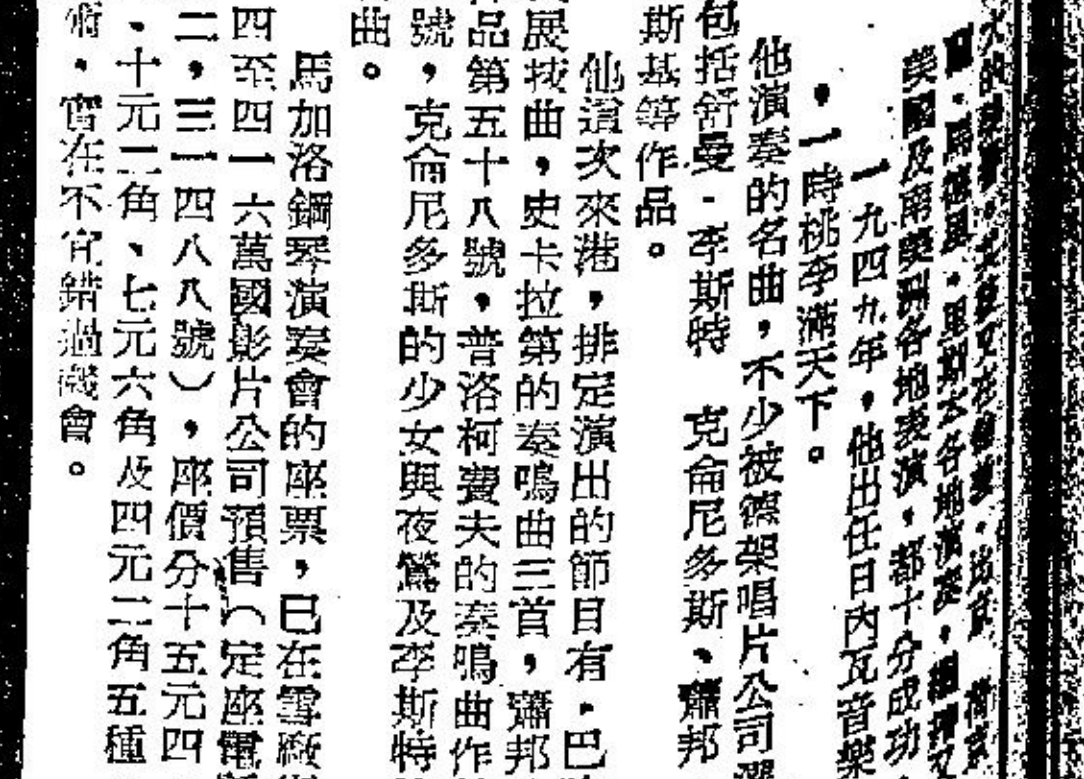 美國及南美洲各地表演，都十分成功
一九四九年，他出任日內瓦音樂
，一時桃李滿天下。
他演奏的名曲，不少被德架唱片公司選
包括舒曼、李斯特 克侖尼多斯、蕭邦
斯基等作品。
他這次來港，排定演出的節目有，巴
展技曲，史卡拉第的奏鳴曲三首，蕭邦
品第五十八號，普洛柯費夫的奏鳴曲作
號，克侖尼多斯的少女與夜鶯及李斯特
曲。
馬加洛鋼琴演奏會的座票，已在雪廠
四至四一六萬國影片公司預售（定座電
二，三一四八八號），座價分十五元四
、十元二角、七元六角及四元二角五種
術，實在不宜錯過機會。